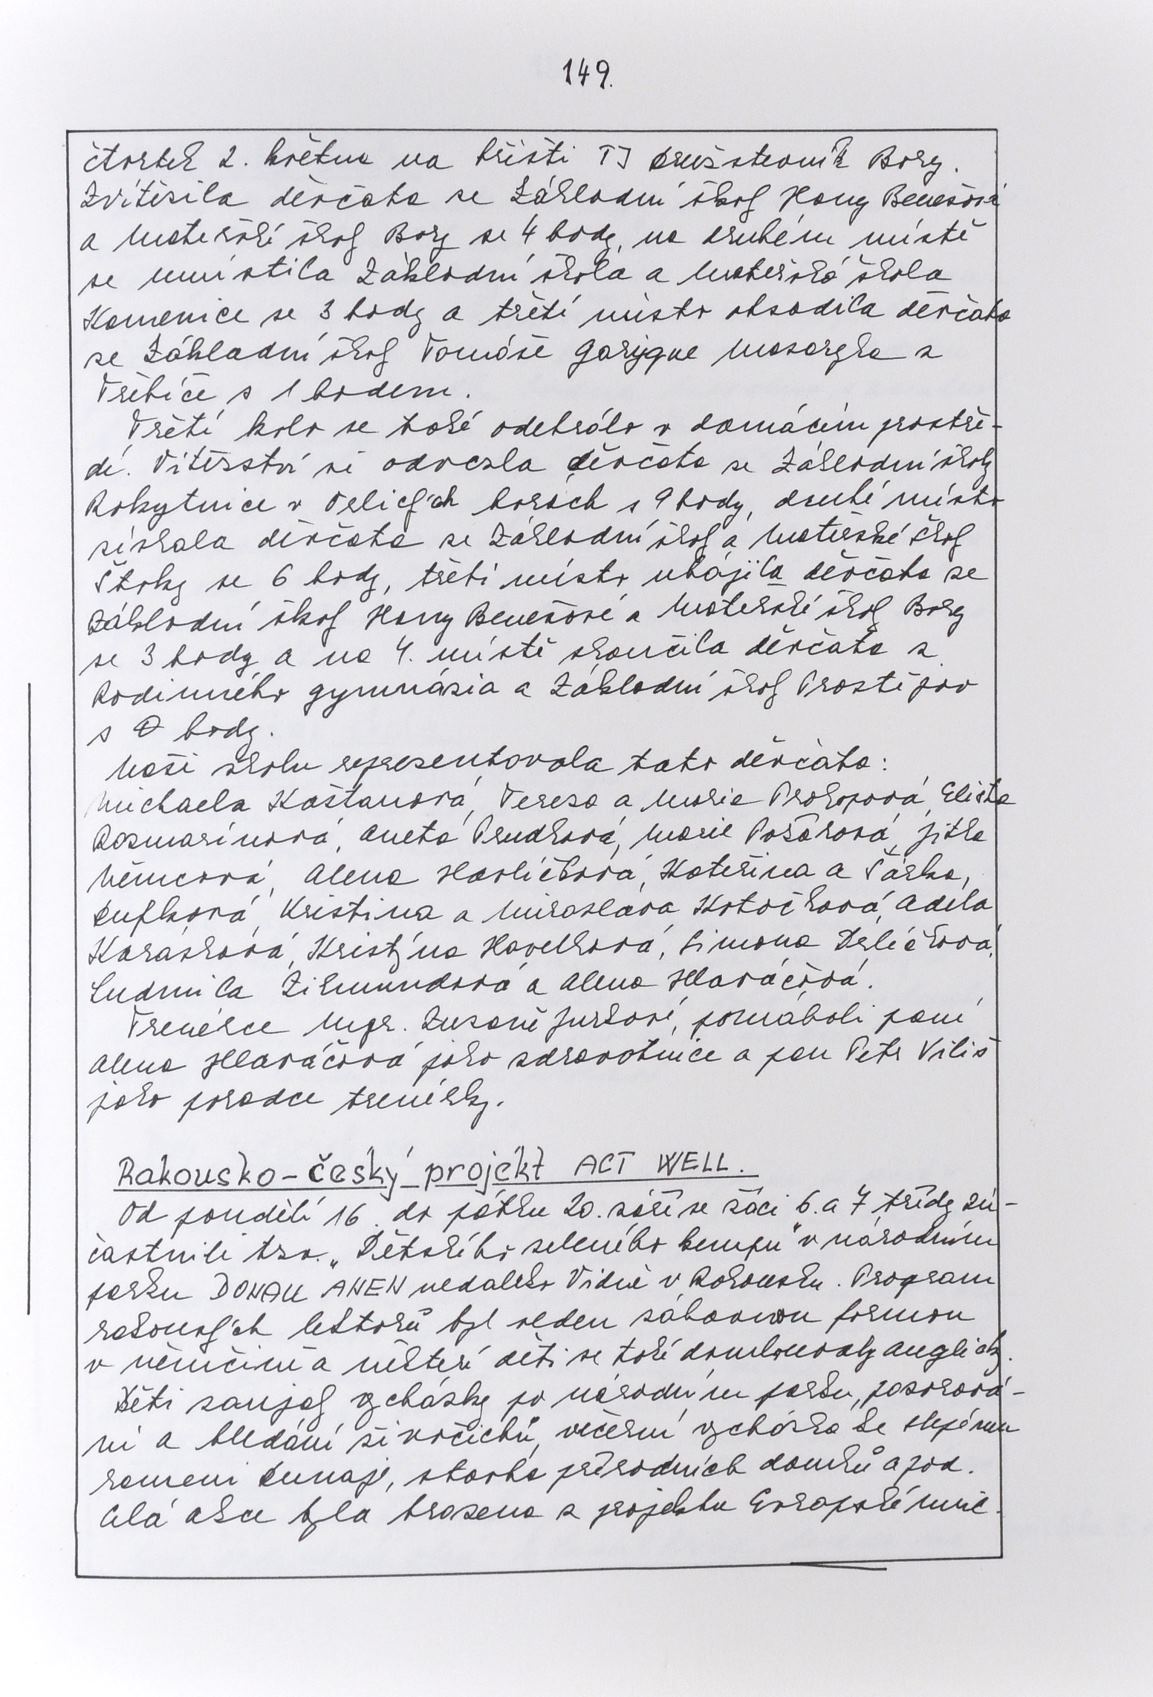 149.
čtvrtek 2. května na hřišti TJ Družstevník Bory.
Zvítězila děvčata ze Základní školy Hany Benešové
a Mateřské školy Bory se 4 body, na druhém místě
se umístila Základní škola a Mateřská škola
Kamenice se 3 body a třetí místo obsadila děvčata
ze Základní školy Tomáše Garigue Masaryka z
Třebíče s 1 bodem.
Třetí kolo se také odehrálo v domácím prostře-
dí. Vítězství si odvezla děvčata ze Základní školy
Rokytnice v Orlických horách s 9 body, druhé místo
získala děvčata ze Základní školy a Mateřské školy
Štoky se 6 body, třetí místo uhájila děvčata ze
Základní školy Hany Benešové a Mateřské školy Bory
se 3 body a na 4. místě skončila děvčata z
Rodinného gymnázia a Základní školy Prostějov
s 0 body.
Naši školu reprezentovala tato děvčata:
Michaela Kaštanová, Tereza a Marie Prokopová, Eliška
Rosmarinová, Aneta Prudková, Marie Požárová, Jitka
Němcová, Alena Havlíčková, Kateřina a Šárka
Dufková, Kristina a Miroslava Kotočková, Adéla
Karásková, Kristýna Havelková, Simona Drlíčková,
Ludmila Zikmundová a Alena Hlaváčová.
Trenérce Mgr. Zuzaně Jurkové, pomáhali paní
Alena Hlaváčová jako zdravotnice a pan Petr Viliš
jako poradce trenérky.
Rakousko-český projekt ACT WELL.
Od pondělí 16. do pátku 20. září se žáci 6. a 7 třídy zú-
častnili tzv. „Dětského zeleného kempu" v národním
parku DONAU AUEN nedaleko Vídně v Rakousku. Program
rakouských lektorů byl veden zábavnou formou
v němčině a některé děti se také domlouvaly anglicky.
Děti zaujaly vycházky po národním parku, pozorová-
ní a hledání živočichů, večerní vycházka ke slepému
rameni Dunaje, stavba přírodních domků a pod.
Celá akce byla hrazena z projektu Evropské unie.